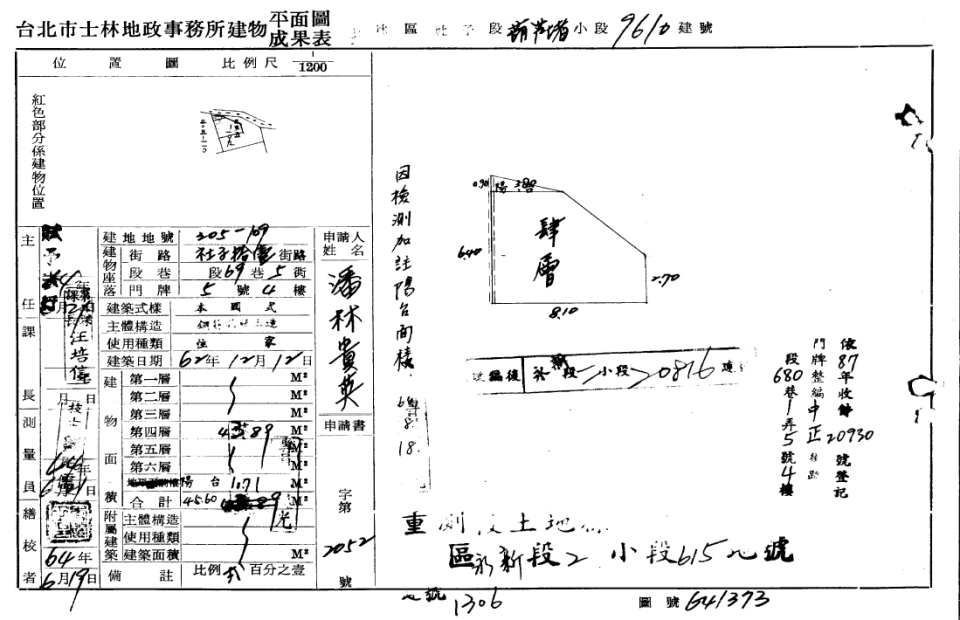 台北市士林地政事務所建物平面圖成果表
區 段 小段 9610 建號
位置圖 比例尺 1/1200
紅色部分係建物位置
因檢測加註陽台面積
8.18.
0.90 陽台 3.80
肆層
6.40
2.70
8.10
建地地號 205-109
建物座落 街路 社子 街路
段巷 段69巷5衖
門牌 5號4樓
建築式樣 本國式
主體構造
使用種類 住家
建築日期 62年12月12日
申請人姓名
潘林貴英
建物面積
第一層 M²
第二層 M²
第三層 M²
第四層 43.89 M²
第五層 M²
第六層 M²
陽台 1.71 M²
合計 45.60 M²
附屬建築
主體構造
使用種類
建築面積 M²
備註 比例 百分之壹
申請書
字第
2052
號
主任
課長
汪培
月 日
測量員
年
月 日
繕校者
64年
6月19日
編後 段 小段 0816 建
依87年收件20930號登記
門牌整編中正路
段680巷1弄5號4樓
重測後土地
區永新段2小段615地號
號 1306
圖號 641373